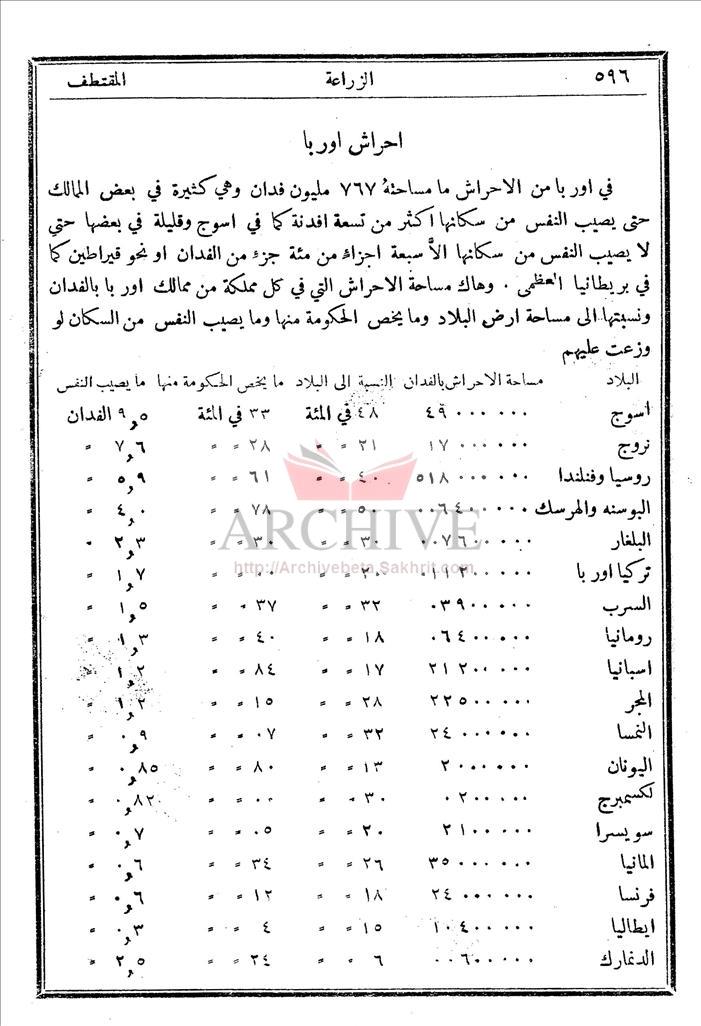 ٥٩٦ الزراعة المقتطف
احراش اوربا
في اوربا من الاحراش ما مساحتهُ ٧٦٧ مليون فدان وهي كثيرة في بعض المالك
حتى يصيب النفس من سكانها اكثر من تسعة افدنة كما في اسوج وقليلة في بعضها حتى
لا يصيب النفس من سكانها الَّا سبعة اجزاء من مئة جزء من الفدان او نحو قيراطين كما
في بريطانيا العظمى . وهاك مساحة الاحراش التي في كل مملكة من ممالك اوربا بالفدان
ونسبتها الى مساحة ارض البلاد وما يخص الحكومة منها وما يصيب النفس من السكان لو
وزعت عليهم
البلاد مساحة الاحراش بالفدان النسبة الى البلاد ما يخص الحكومة منها ما يصيب النفس
اسوج ٤٩٠٠٠٠٠٠ ٤٨ في المئة ٣٣ في المئة ٩,٥ الفدان
نروج ١٧٠٠٠٠٠٠ ٢١ " " ٢٨ " " ٧,٦ "
روسيا وفنلندا ٥١٨٠٠٠٠٠٠ ٤٠ " " ٦١ " " ٥,٩ "
البوسنه والهرسك ٠٠٦٤٠٠٠٠٠ ٥٠ " " ٧٨ " " ٤,٠ "
البلغار ٠٠٧٦٠٠٠٠٠ ٣٠ " " ٣٠ " " ٢,٣ "
تركيا اوربا ٠١١٢٠٠٠٠٠ ٢٠ " " ٠٠ " " ١,٧ "
السرب ٠٣٩٠٠٠٠٠ ٣٢ " " ٣٧ " " ١,٥ "
رومانيا ٠٦٤٠٠٠٠٠ ١٨ " " ٤٠ " " ١,٣ "
اسبانيا ٢١٢٠٠٠٠٠ ١٧ " " ٨٤ " " ١,٢ "
المجر ٢٢٥٠٠٠٠٠ ٢٨ " " ١٥ " " ١,٢ "
النمسا ٢٤٠٠٠٠٠٠ ٣٢ " " ٠٧ " " ٠,٩ "
اليونان ٢٠٠٠٠٠٠ ١٣ " " ٨٠ " " ٠,٨٥ "
لكسمبرج ٠٢٠٠٠٠٠ ٣٠ " " ٠٠ " " ٠,٨٢ "
سويسرا ٢١٠٠٠٠٠ ٢٠ " " ٠٥ " " ٠,٧ "
المانيا ٣٥٠٠٠٠٠٠ ٢٦ " " ٣٤ " " ٠,٦ "
فرنسا ٢٤٠٠٠٠٠٠ ١٨ " " ١٢ " " ٠,٦ "
ايطاليا ١٠٤٠٠٠٠٠ ١٥ " " ٤ " " ٠,٣ "
الدنمارك ٠٠٦٠٠٠٠٠ ٦ " " ٢٤ " " ٢,٥ "
ARCHIVE
http://Archivebeta.Sakhrit.com